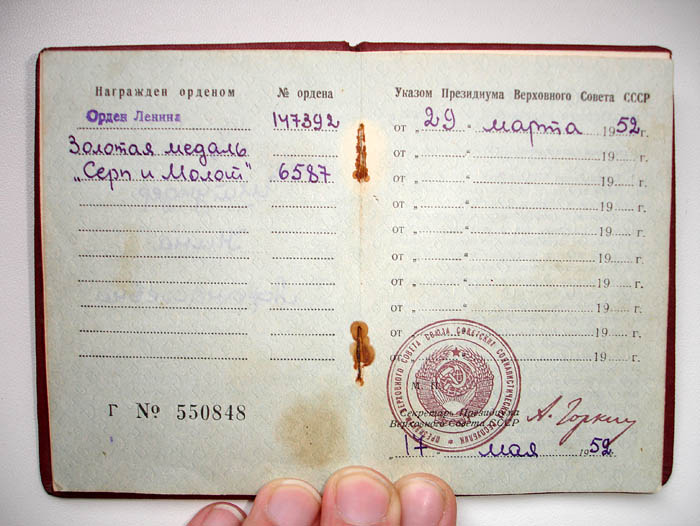 Награжден орденом № ордена
Орден Ленина 147392
Золотая медаль
„Серп и Молот" 6587
Г № 550848
Указом Президиума Верховного Совета СССР
от „ 29 “ марта 1952 г.
от „ “ 19 г.
от „ “ 19 г.
от „ “ 19 г.
от „ “ 19 г.
от „ “ 19 г.
от „ “ 19 г.
от „ “ 19 г.
от „ 19 г.
от 19 г.
М. П.
Секретарь Президиума
Верховного Совета СССР А. Горкин
17 мая 1952 г.